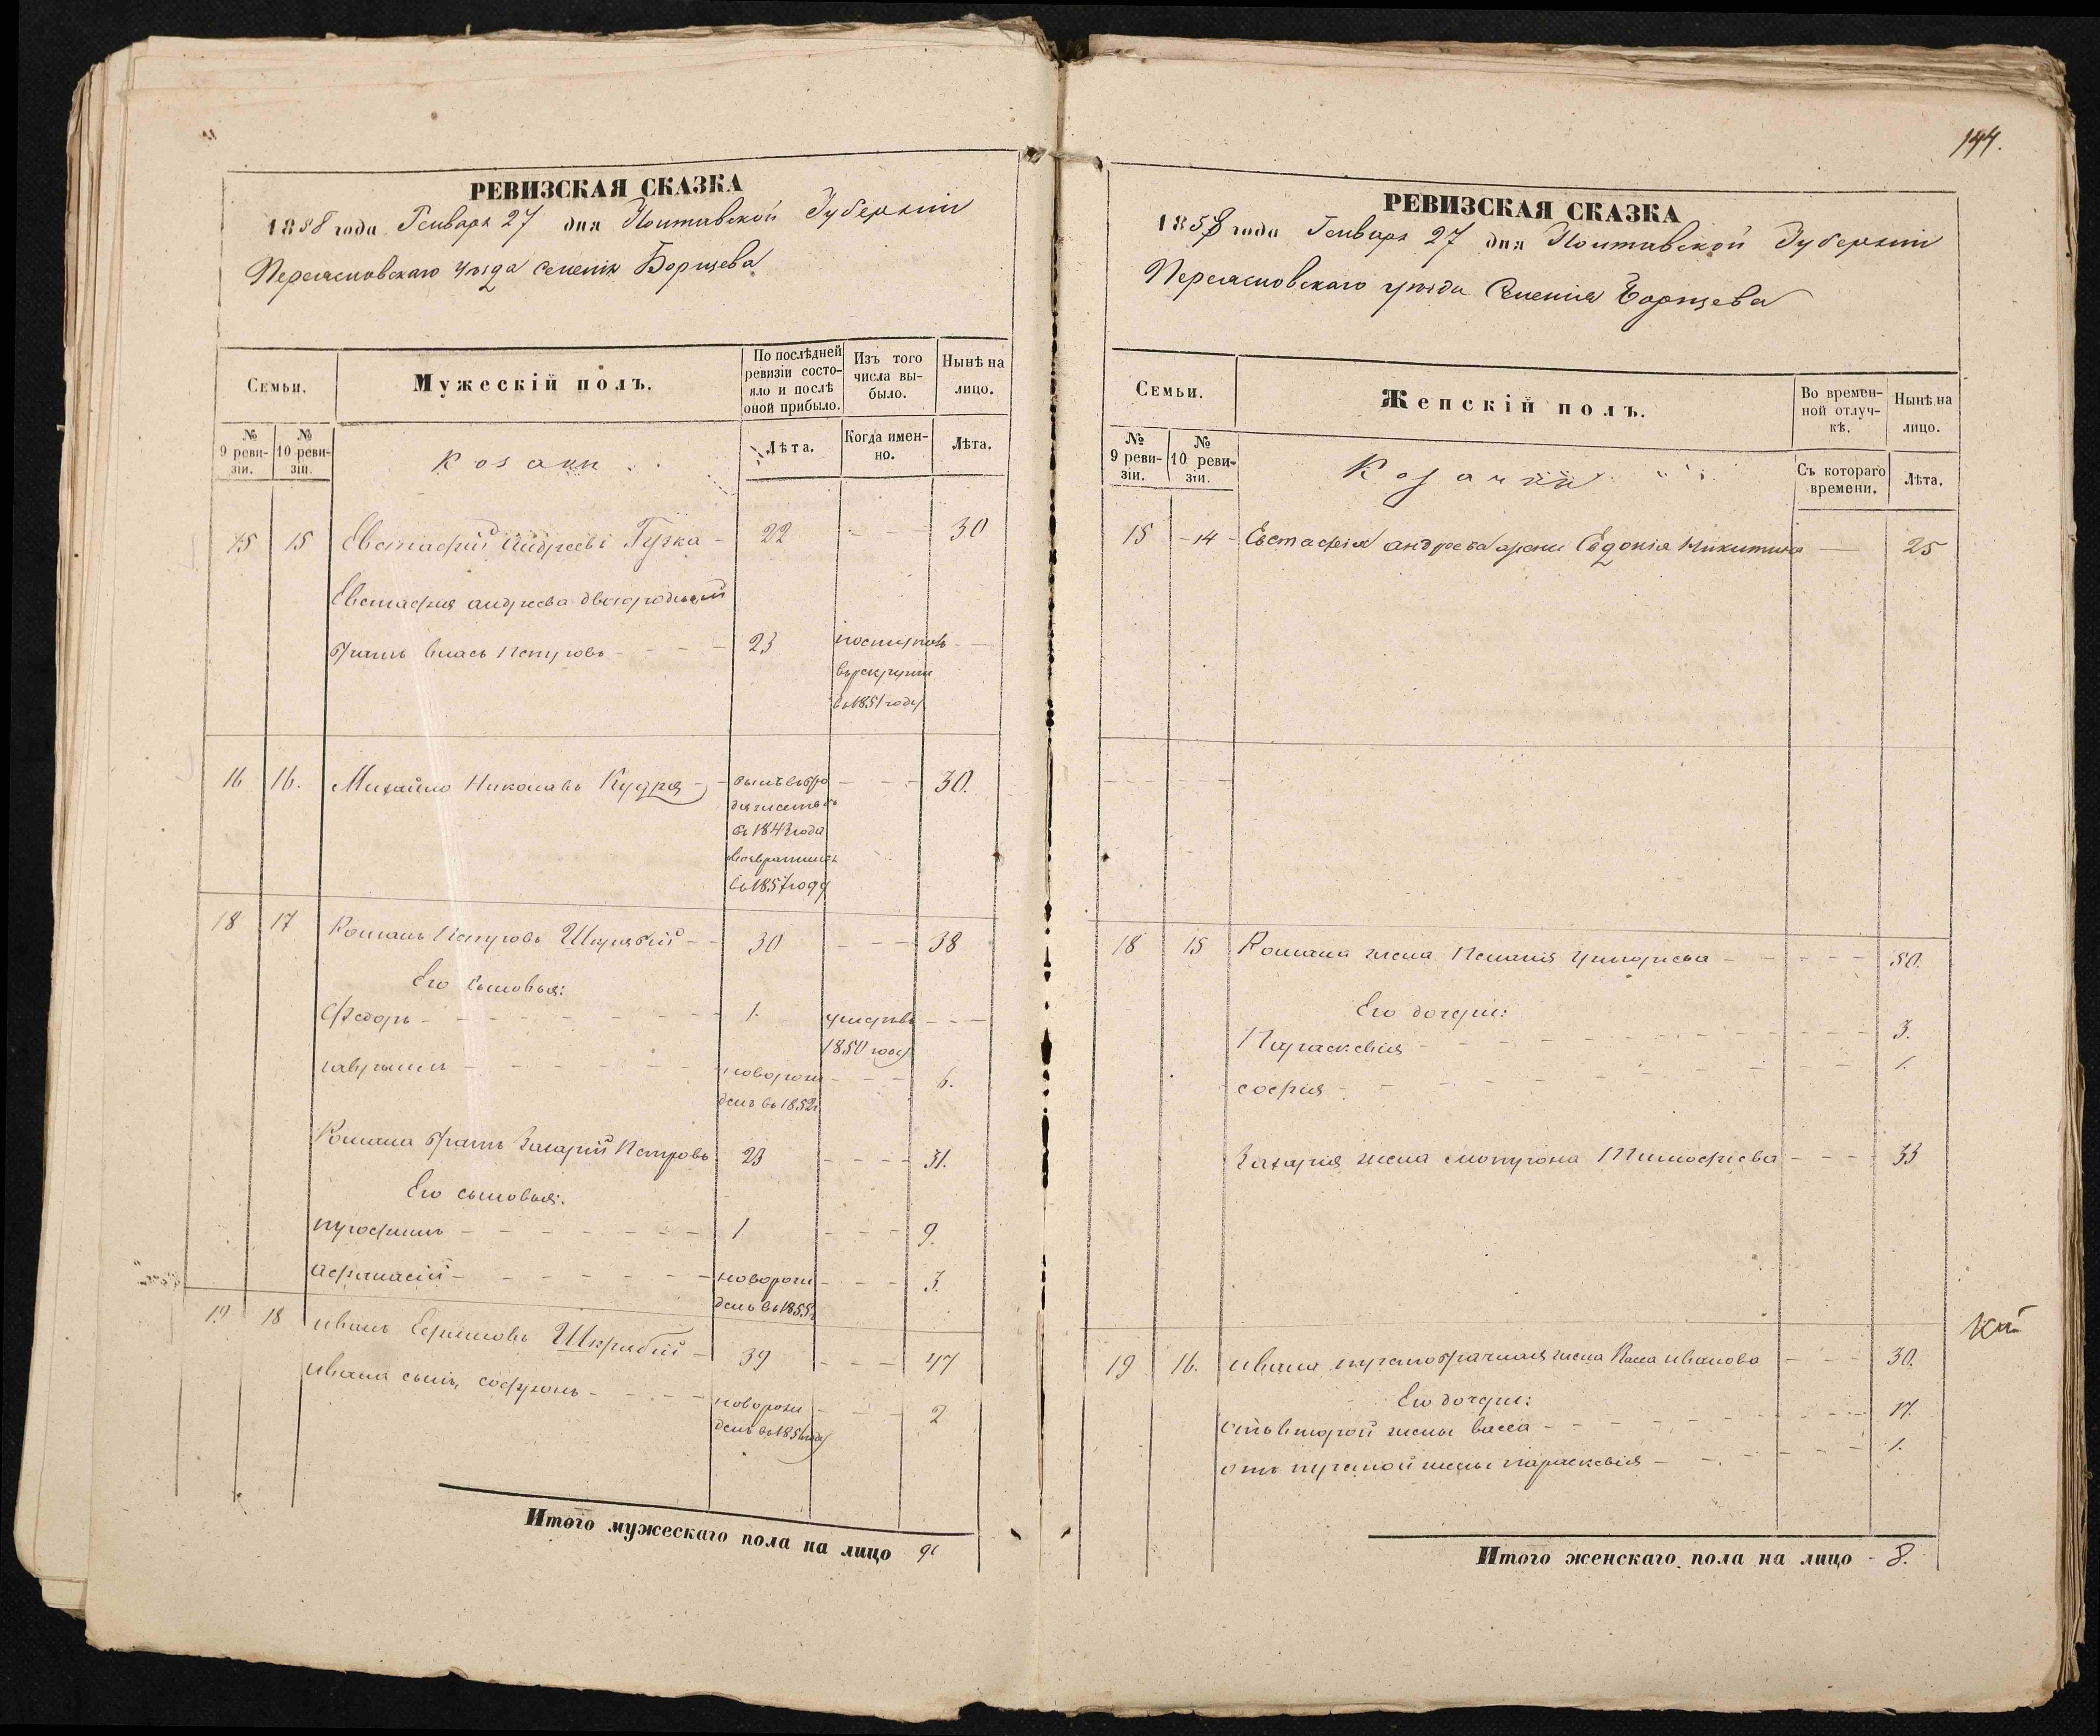 РЕВИЗСКАЯ СКАЗКА
1858 года Генваря 27 дня Полтавской Губернии
Переяславскаго уезда селения Борщева
Семьи.
Мужескій полъ.
По послѣдней ревизіи состояло и послѣ оной прибыло.
Изъ того числа выбыло.
Нынѣ на лицо.
№ 9 ревизіи.
№ 10 ревизіи.
Козаки
Лѣта.
Когда именно.
Лѣта.
15 15 Евстафий Андреевъ 22 30
Евстафия андреева двоюродный
братъ власъ Петровъ 23 поступилъ
въ рекруты
въ 1851 году
16 16. Михайло Николаевъ Кудря 30.
въ 1843 года
въ 1857 году
18 17 Романъ Петровъ Шкрябій 30 38
Его сыновья:
Федоръ 1. умеръ въ
1850 году
гаврыилъ новорож 6.
денъ въ 1852 г
Романа братъ Захарій Петровъ 23 31.
Его сыновья:
трофимъ 1 9.
Афанасій новорож 3.
денъ въ 1855 г
19 18 иванъ Ефимовъ Шкрябій 39 47
ивана сынъ софронъ новорож 2
денъ въ 1856 году
Итого мужескаго пола на лицо 9
144.
РЕВИЗСКАЯ СКАЗКА
1858 года Генваря 27 дня Полтавской Губернии
Переяславскаго уезда Селения Борщева
Семьи.
Женскій полъ.
Во временной отлучкѣ.
Нынѣ на лицо.
№ 9 ревизіи.
№ 10 ревизіи.
Козачки
Съ котораго времени.
Лѣта.
15 14 Евстафія андреева жена Евдокія Никитина 25
18 15 Романа жена Пелагія григорьева 50.
Его дочери:
Параскевія 3.
софия 1.
Захария жена матрона Тимофіева 33
19 16. ивана третобрачная жена Васса иванова 30.
Его дочери:
отъ второй жены васса 17.
отъ третой жены параскевія 1.
Итого женскаго пола на лицо 8.